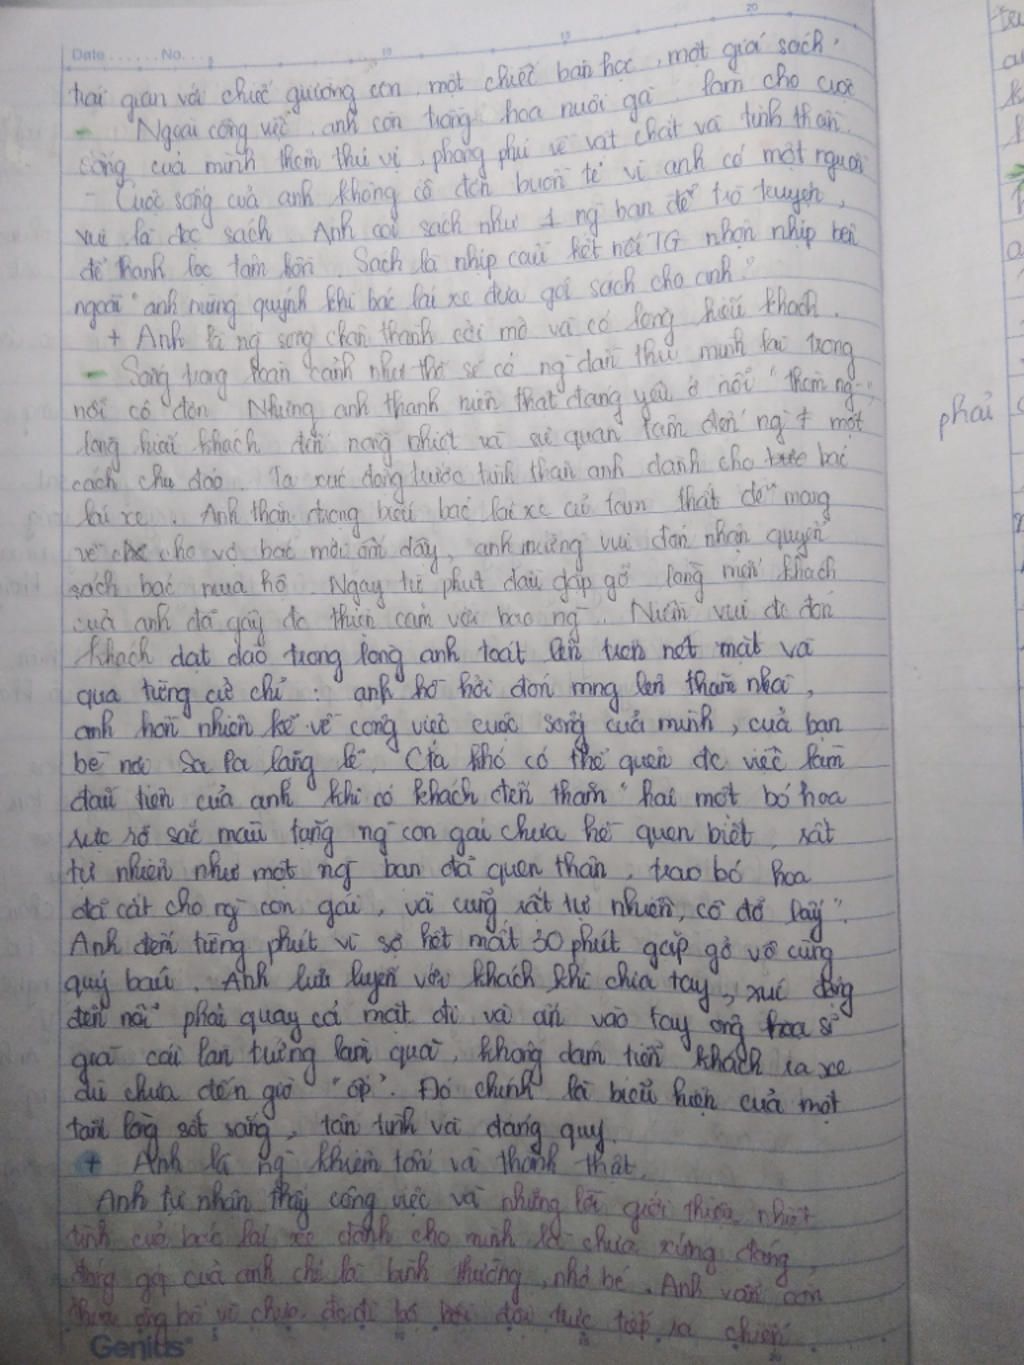 Date ...... No. ..
trai gian với chiếc giường con, một chiếc bàn học, một giá sách.
- Ngoài công việc, anh còn trồng hoa nuôi gà, làm cho cuộc
sống của mình thêm thú vị, phong phú về vật chất và tinh thần.
- Cuộc sống của anh không cô đơn buồn tẻ vì anh có một nguồn
vui là đọc sách. Anh coi sách như 1 ng bạn để trò truyện,
để thanh lọc tâm hồn. Sách là nhịp cầu kết nối TG nhộn nhịp bên
ngoài "anh mừng quýnh khi bác lái xe đưa gói sách cho anh."
+ Anh là ng sống chân thành cởi mở và có lòng hiếu khách.
- Sống trong hoàn cảnh như thế sẽ có ng dần thu mình lại trong
nỗi cô đơn. Nhưng anh thanh niên thật đáng yêu ở nỗi "thèm ng",
lòng hiếu khách đến nồng nhiệt và sự quan tâm đến ng ≠ một
cách chu đáo. Ta xúc động trước tình thân anh dành cho bác
lái xe. Anh thận trọng biếu bác lái xe củ tam thất để mang
về cho vợ bác mới ốm dậy, anh mừng vui đón nhận quyển
sách bác mua hộ. Ngay từ phút đầu gặp gỡ lòng mến khách
của anh đã gây đc thiện cảm với bao ng. Niềm vui đc đón
khách dạt dào trong lòng anh toát lên trên nét mặt và
qua từng cử chỉ: anh hồ hởi đón mng lên thăm nhà,
anh hồn nhiên kể về công việc cuộc sống của mình, của bạn
bè nơi Sa Pa lặng lẽ. Cta khó có thể quên đc việc làm
đầu tiên của anh khi có khách đến thăm "hái một bó hoa
rực rỡ sắc màu tặng ng con gái chưa hề quen biết, rất
tự nhiên như một ng bạn đã quen thân, trao bó hoa
đã cắt cho ng con gái, và cũng rất tự nhiên, cô đỡ lấy".
Anh đếm từng phút vì sợ hết mất 30 phút gặp gỡ vô cùng
quý báu. Anh lưu luyến với khách khi chia tay, xúc động
đến nỗi phải quay cả mặt đi và ấn vào tay ông hoạ sĩ
già cái làn trứng làm quà, không dám tiễn khách ra xe
dù chưa đến giờ "ốp". Đó chính là biểu hiện của một
tấm lòng sốt sắng, tận tình và đáng quý.
+ Anh là ng khiêm tốn và thành thật.
Anh tự nhận thấy công việc và những lời giới thiệu nhiệt
tình của bác lái xe dành cho mình là chưa xứng đáng,
đóng góp của anh chỉ là bình thường, nhỏ bé. Anh vẫn còn
ông bố vì chưa đc đi bộ đội trực tiếp ra chiến
Genius
phải